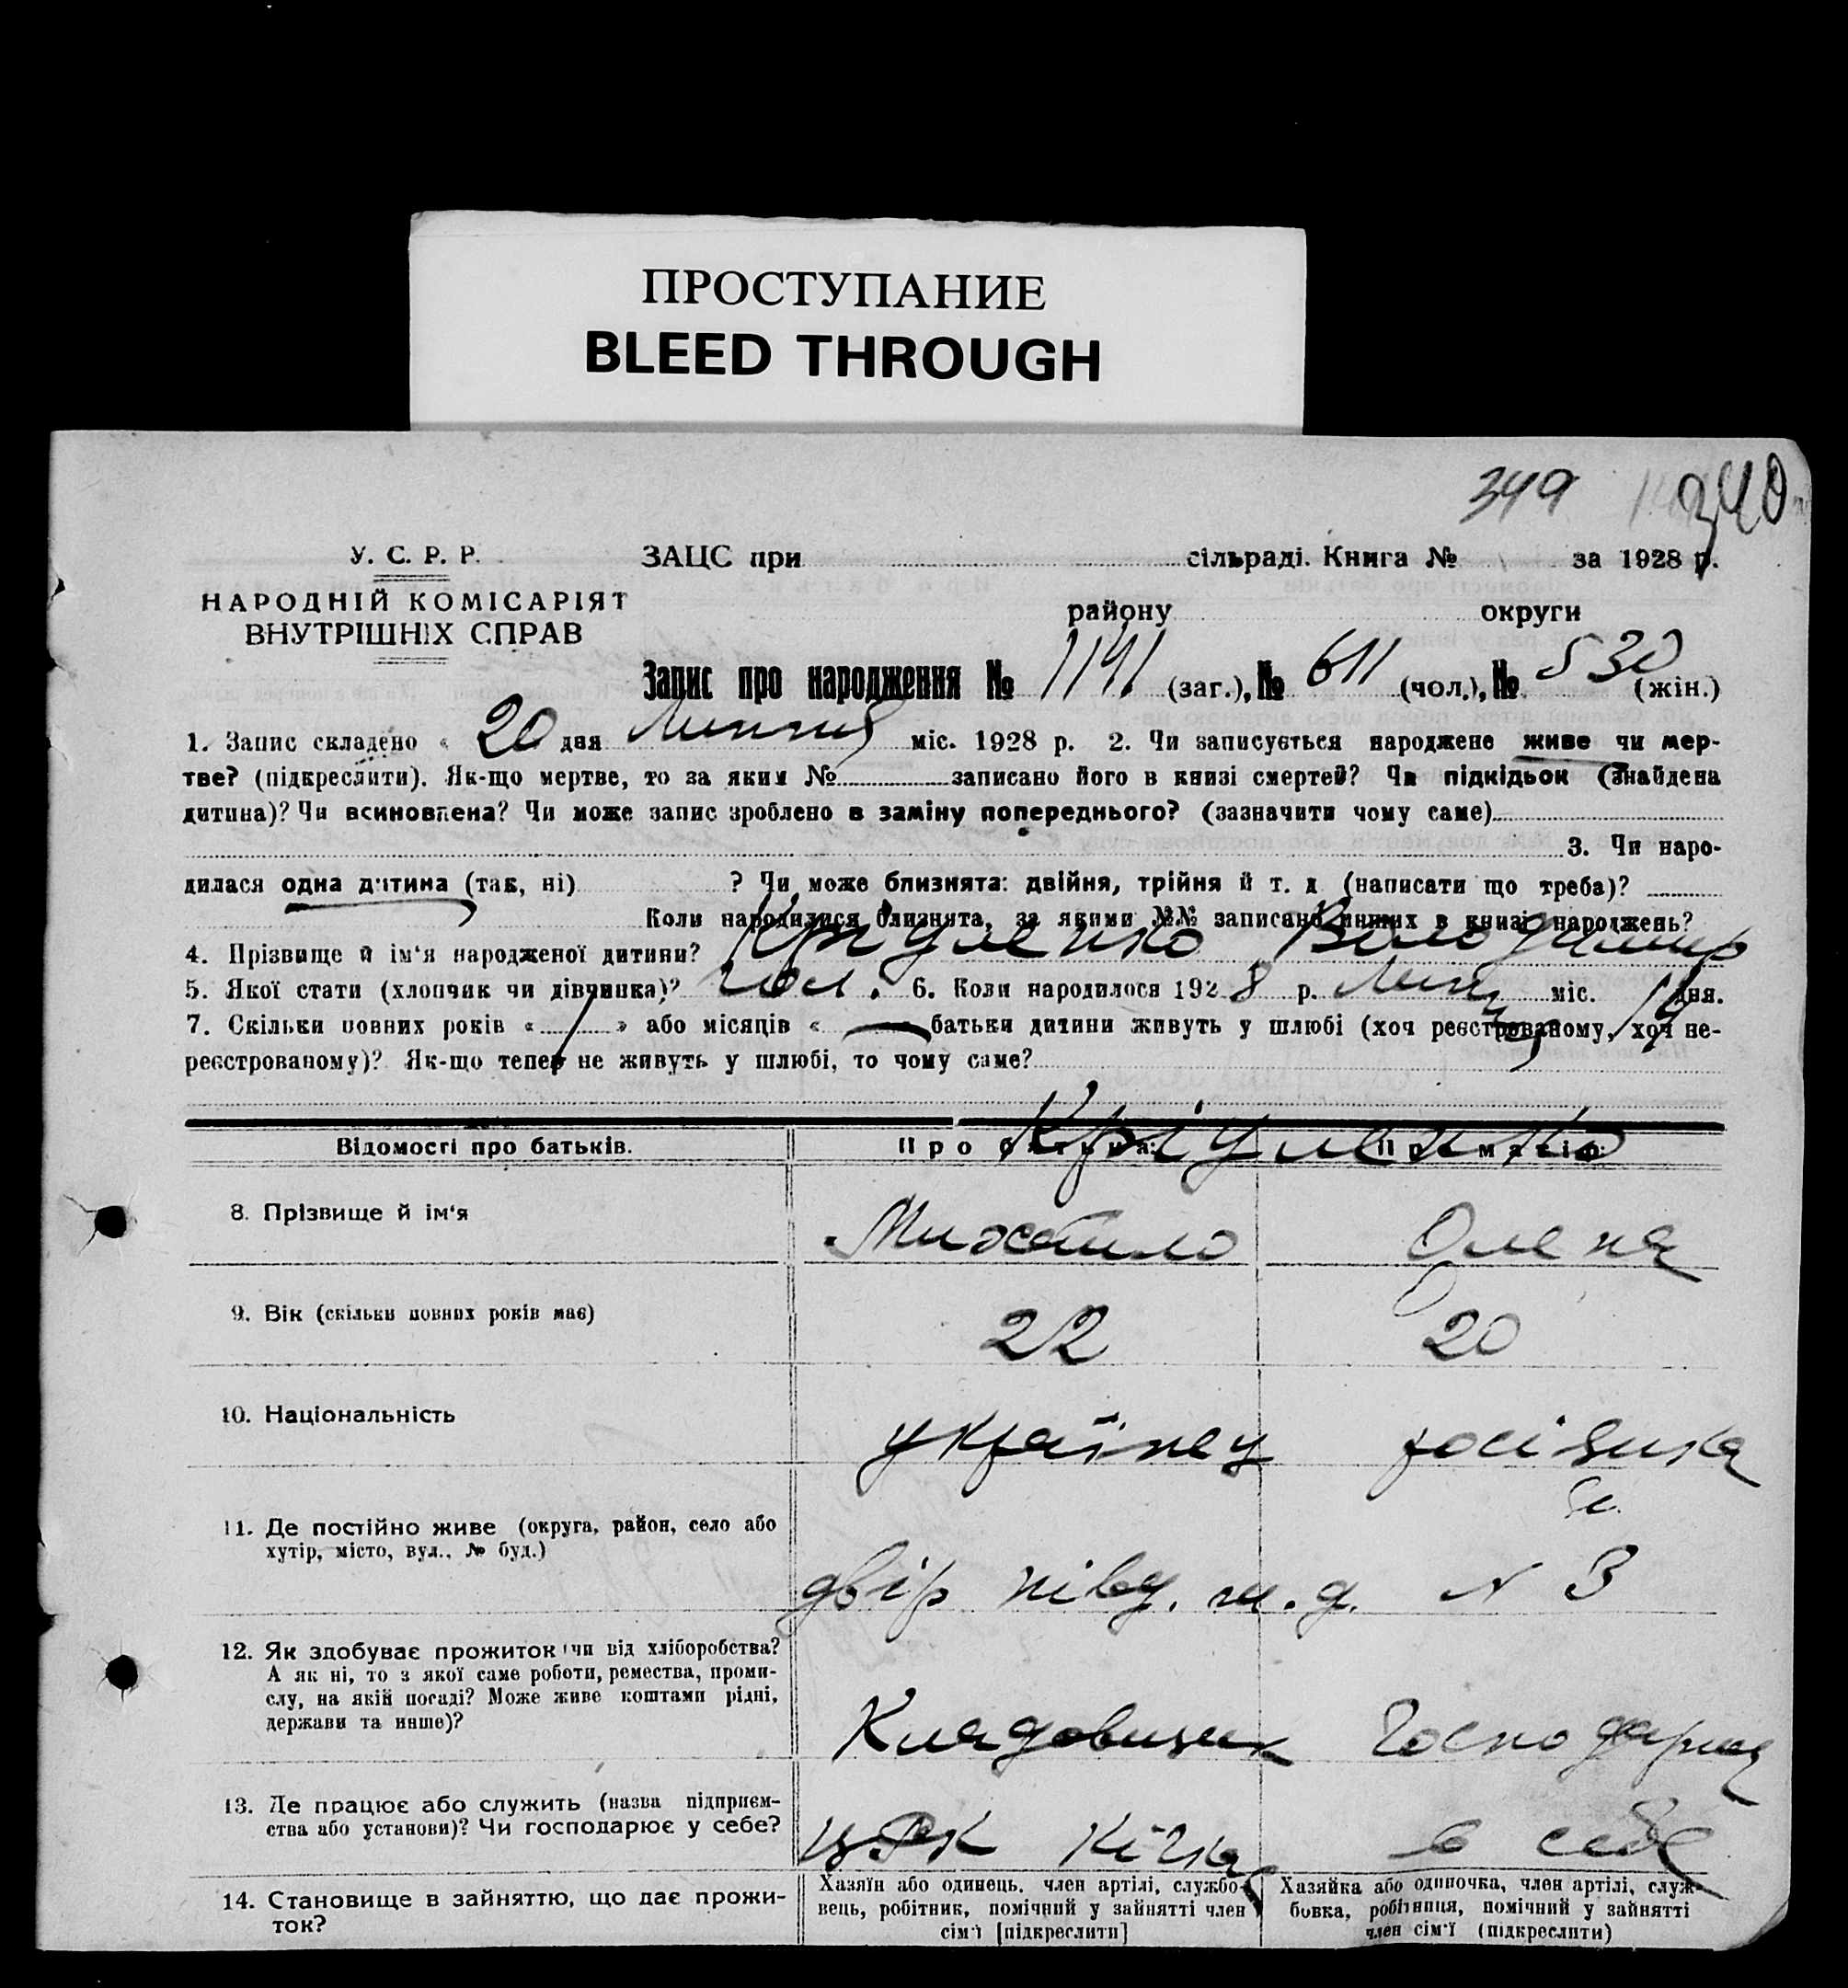 ПРОСТУПАНИЕ
BLEED THROUGH
349 340
У. С. Р. Р.
НАРОДНІЙ КОМІСАРІЯТ
ВНУТРІШНІХ СПРАВ
ЗАЦС при сільраді. Книга № за 1928 р.
району округи
Запис про народження № 1141 (заг.), № 611 (чол.), № 530 (жін.)
1. Запис складено « 20 дня Липня міс. 1928 р. 2. Чи записується народжене живе чи мер-
тве? (підкреслити). Як-що мертве, то за яким № записано його в книзі смертей? Чи підкідьок (знайдена
дитина)? Чи всиновлена? Чи може запис зроблено в заміну попереднього? (зазначити чому саме)
3. Чи наро-
дилася одна дитина (так, ні) ? Чи може близнята: двійня, трійня й т. д (написати що треба)?
Коли народилися близнята, за якими №№ записано инших в книзі народжень?
4. Прізвище й ім'я народженої дитини? Володимир
5. Якої стати (хлопчик чи дівчинка)? чол. 6. Коли народилося 1928 р. Липня міс. 14 дня.
7. Скільки повних років « 1 » або місяців « — батьки дитини живуть у шлюбі (хоч реєстрованому, хоч не-
реєстрованому)? Як-що тепер не живуть у шлюбі, то чому саме?
Відомості про батьків. Про батька: Про матір:
8. Прізвище й ім'я Михайло Олена
9. Вік (скільки повних років має) 22 20
10. Національність українец росіянка
11. Де постійно живе (округа, район, село або
хутір, місто, вул., № буд.)
двір півд. з. д. N 3
12. Як здобуває прожиток (чи від хліборобства?
А як ні, то з якої саме роботи, ремества, проми-
слу, на якій посаді? Може живе коштами рідні,
держави та инше)?
Кладовщик Господарка
13. Де працює або служить (назва підприєм-
ства або установи)? Чи господарює у себе?
ЦРК в себе
14. Становище в зайняттю, що дає прожи-
ток?
Хазяїн або одинець, член артілі, службо-
вець, робітник, помічний у зайнятті член
сім'ї [підкреслити]
Хазяйка або одиночка, член артілі, служ-
бовка, робітниця, помічний у зайнятті
член сім'ї (підкреслити)